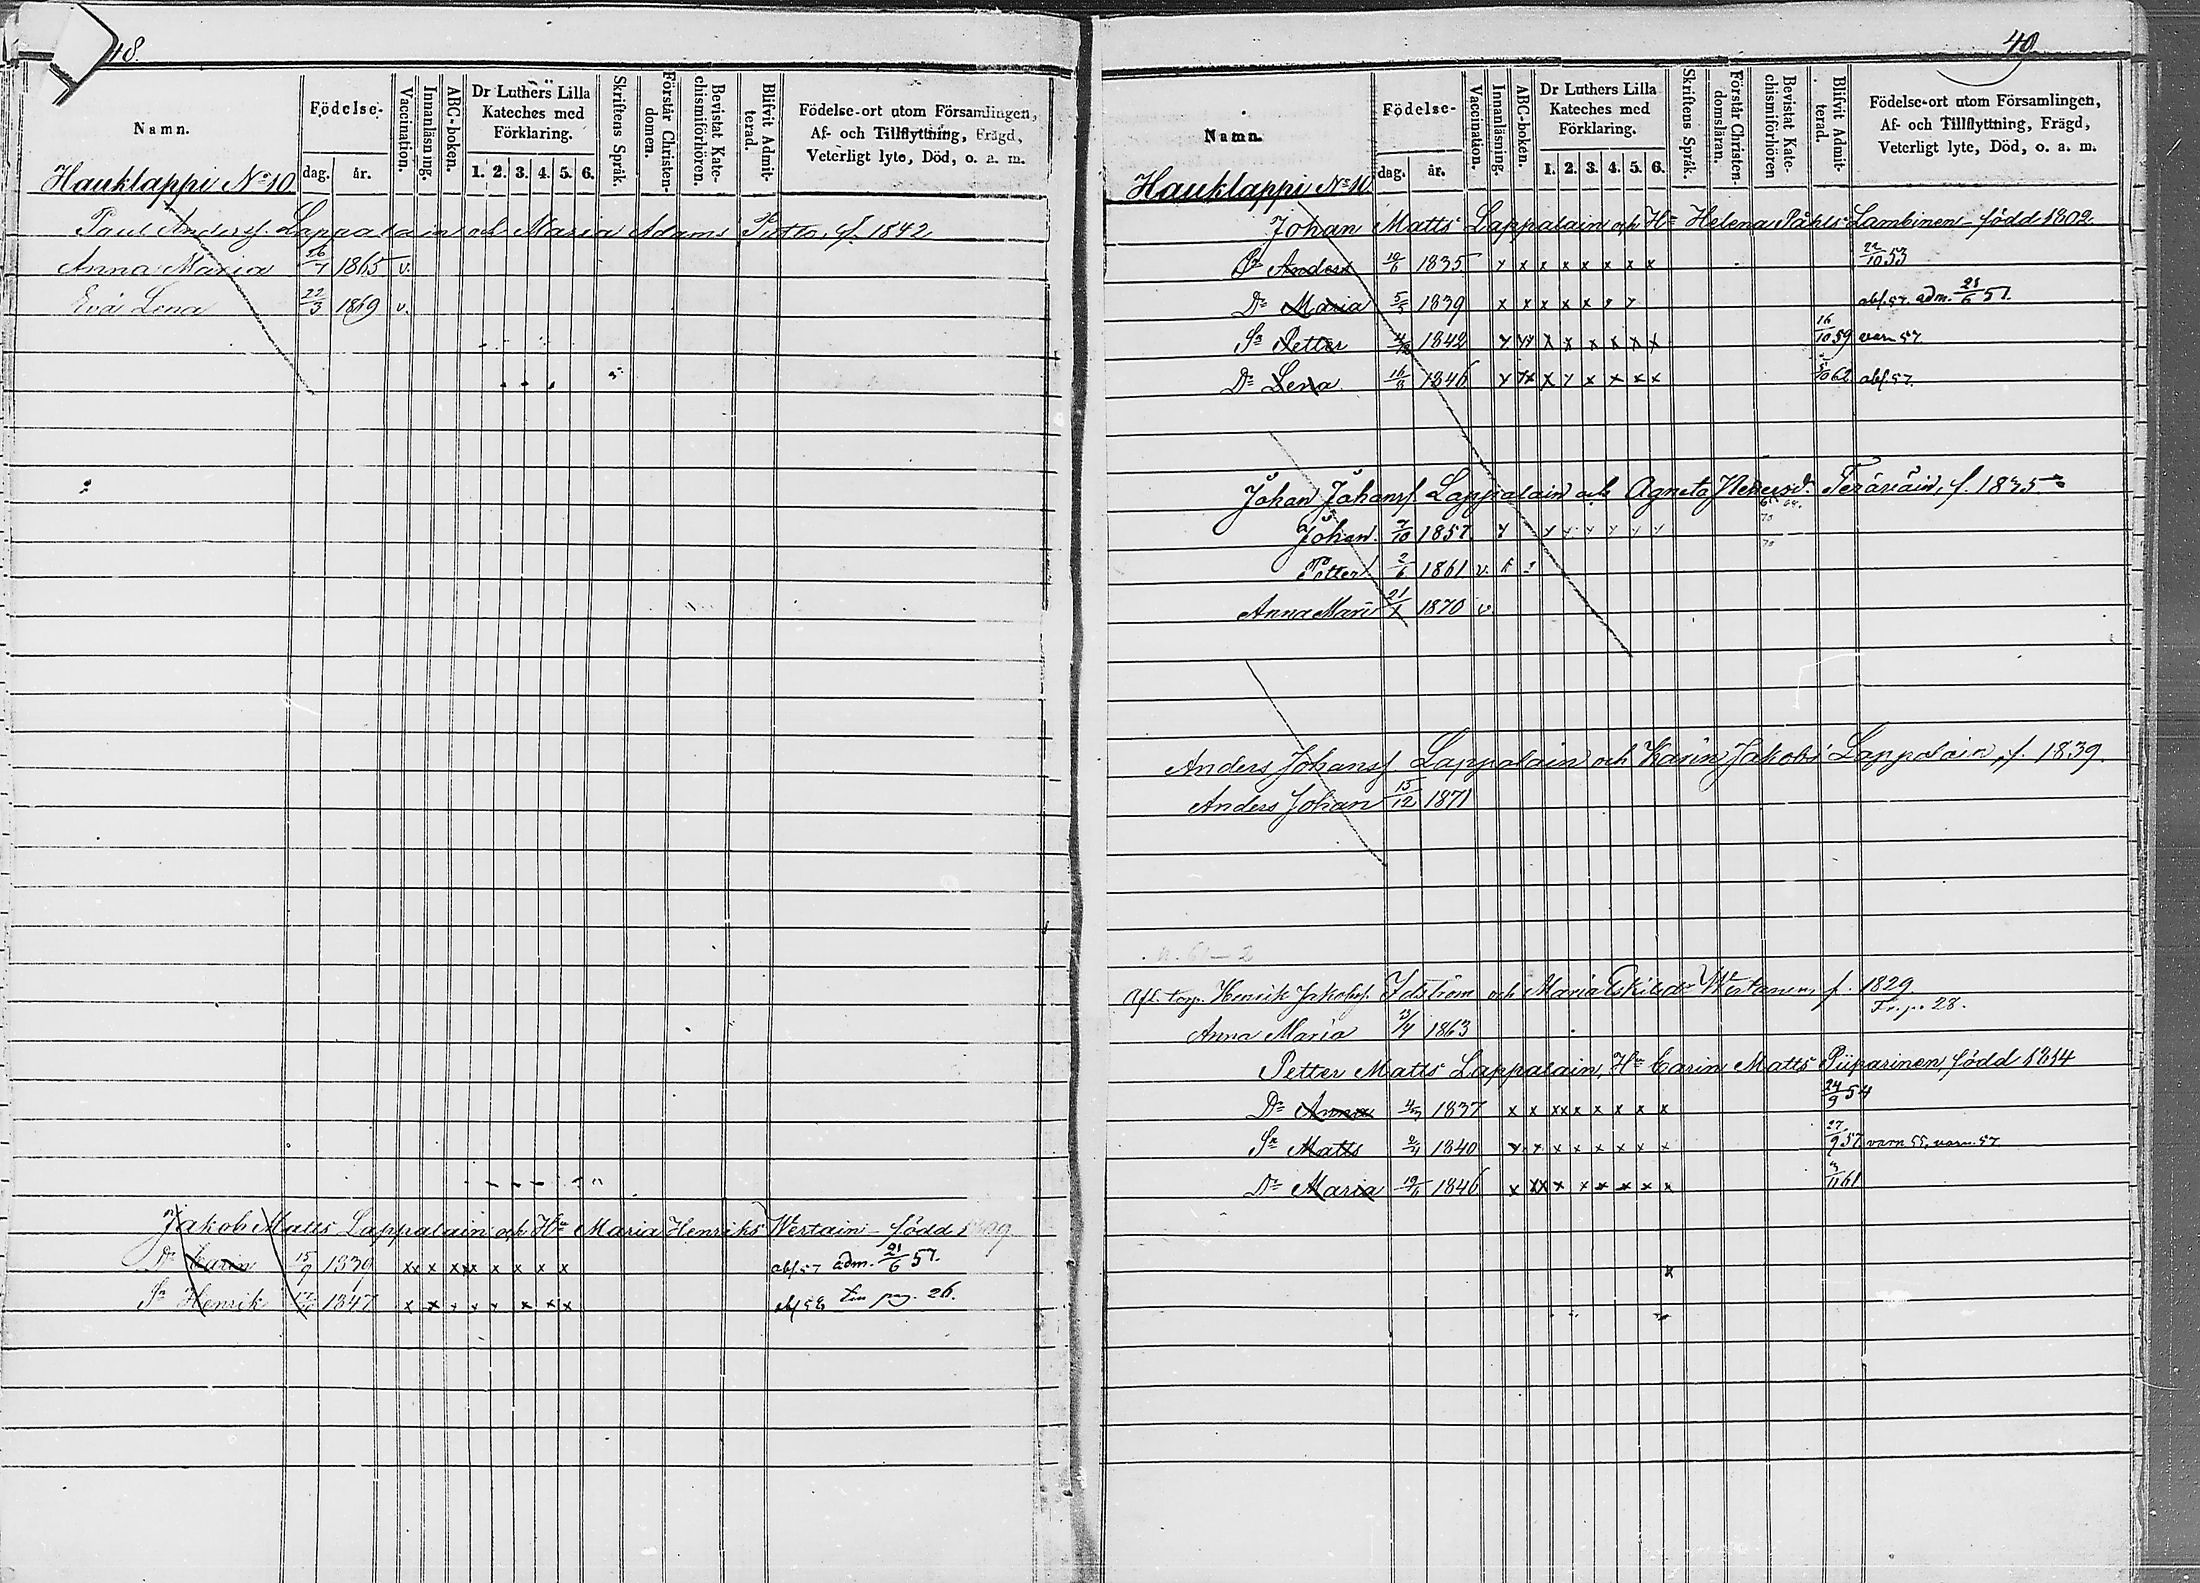 48.
Namn. Födelse- dag. år. Vaccination. Innanläsning. ABC-boken. Dr Luthers Lilla Kateches med Förklaring. 1. 2. 3. 4. 5. 6. Skriftens Språk. Förstår Christendomen. Bevistat Katechismiförhören. Blifvit Admitterad. Födelse-ort utom Församlingen, Af- och Tillflyttning, Frägd, Veterligt lyte, Död, o. a. m.
Hauklappi No 10
Paul Andersf. Lappalain och Maria Adams f. 1842
Anna Maria 26/7 1865 v.
Eva Lena 22/3 1869 v.
Jakob Matts Lappalain och Hu Maria Henriks Wertain - född
Dr Carin 15/9 1839 xx x xxx x x x x abs. 57 adm. 21/6 57.
Sn Henrik 1847 x x x x x x x x abs 58 pag. 26.
49
Namn. Födelse- dag. år. Vaccination. Innanläsning. ABC-boken. Dr Luthers Lilla Kateches med Förklaring. 1. 2. 3. 4. 5. 6. Skriftens Språk. Förstår Christendomsläran. Bevistat Katechismiförhören Blifvit Admitterad. Födelse-ort utom Församlingen, Af- och Tillflyttning, Frägd, Veterligt lyte, Död, o. a. m.
Hauklappi No 10
Johan Matts Lappalain och Hu Helena Påhls Lambinen - född 1802.
Sn Anders 10/6 1835 x x x x x x x x 22/10 53
Dr Maria 5/5 1839 x x x x x x x abs. 57. adm. 21/6 57.
Sn Petter 1842 x xx x x x x x x 16/10 59 varn 57.
Dr Lena 16/8 1846 x xx x x x x x x 5/10 62 abs. 57.
Johan Johansf. Lappalain och Agneta f. 1835
Johan 7/10 1857 x x x x x x x
Petter 2/6 1861 v.
Anna Mari 21/1 1870 v.
Anders Johansf. Lappalain och Karin Jakobs Lappalain, f. 1839.
Anders Johan 15/12 1871
n. 61-2
Afl. torp. Henrik Jakobsf. Idström och Maria Eskilsdr Wertanen, f. 1829
Fr. p. 28.
Anna Maria 1863
Petter Matts Lappalain, Hu Carin Matts Piiparinen, född 1814
Dr Anna 1837 x x xx x x x x x 24/9 54
Sn Matts 1840 x x x x x x x x 27/9 57 varn 55. varn. 57
Dr Maria 1846 x xx x x x x x x 61